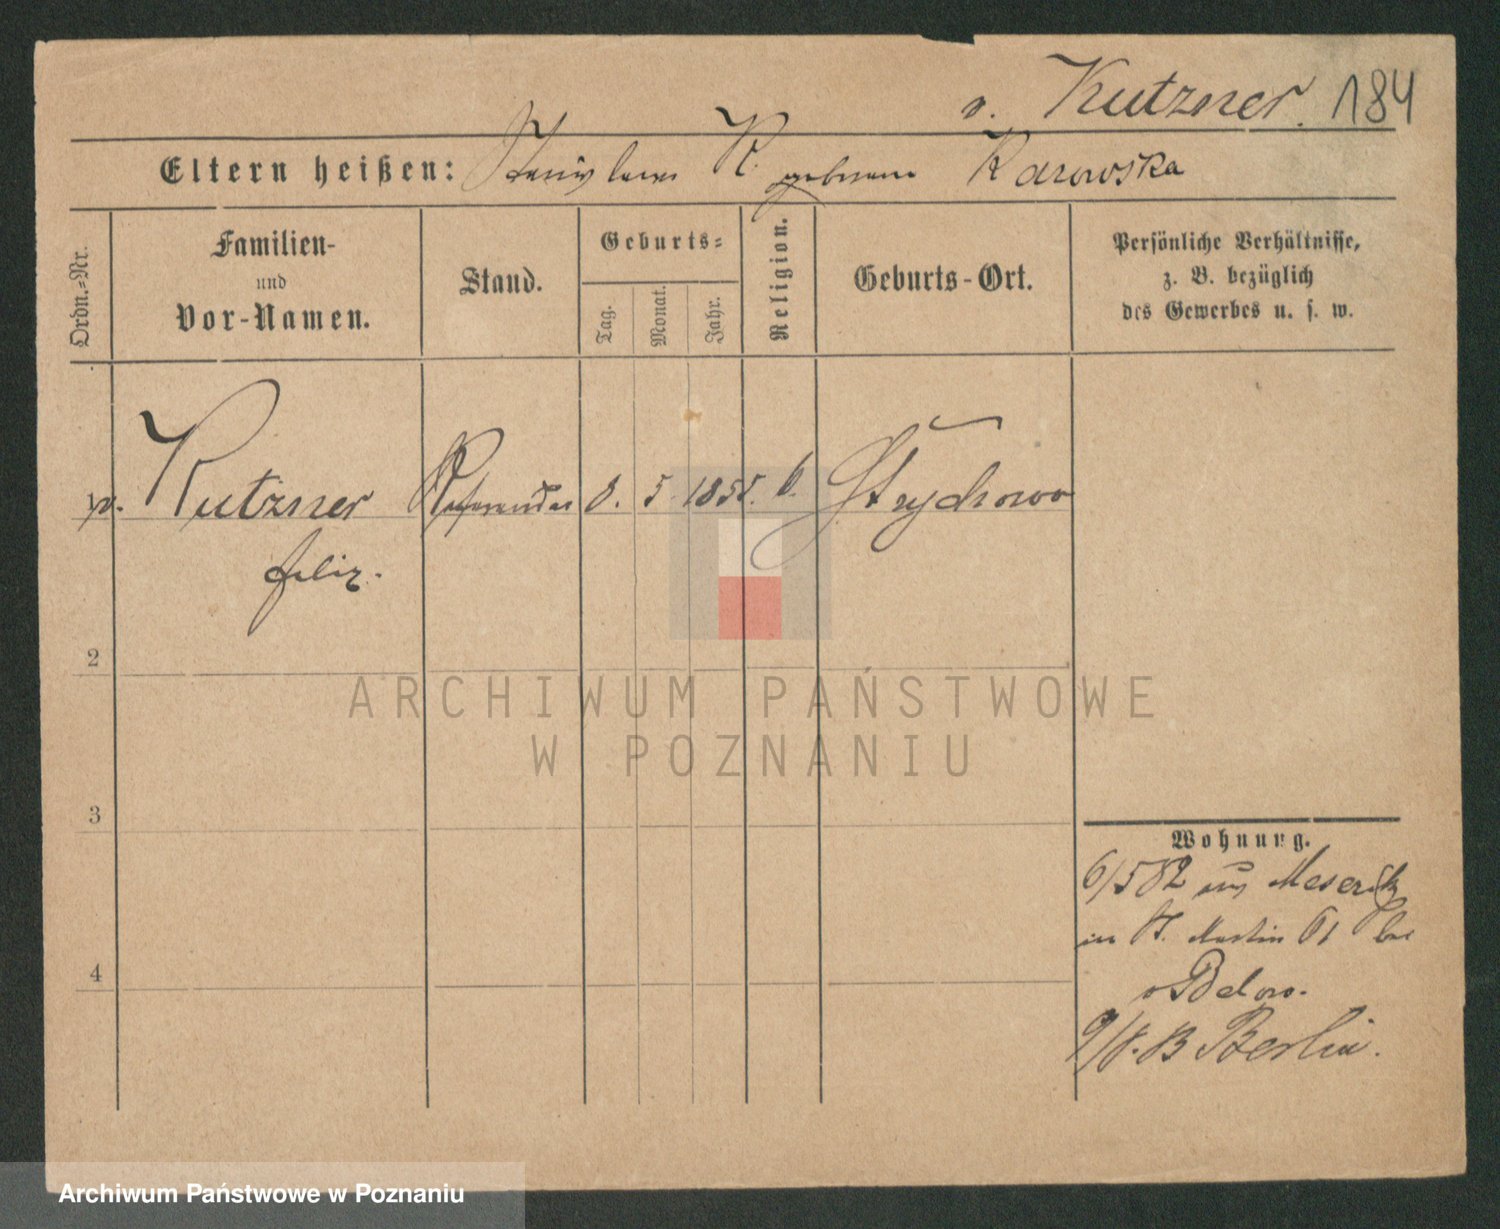 v. Kutzner. 184
Eltern heißen: Stanislaus K. geborene Karowska
Ordn.=Nr.
Familien-
und
Vor-Namen.
Stand.
Geburts=
Tag.
Monat.
Jahr.
Religion.
Geburts-Ort.
Persönliche Verhältnisse,
z. B. bezüglich
des Gewerbes u. s. w.
v. Kutzner Referendar 8. 5. 1855. Strychowo
Felix.
2
3
4
Wohnung.
6/582 aus Meseritz
in St. Martin 61 bei
v Below.
9/8.83 Berlin.
ARCHIWUM PAŃSTWOWE
W POZNANIU
Archiwum Państwowe w Poznaniu